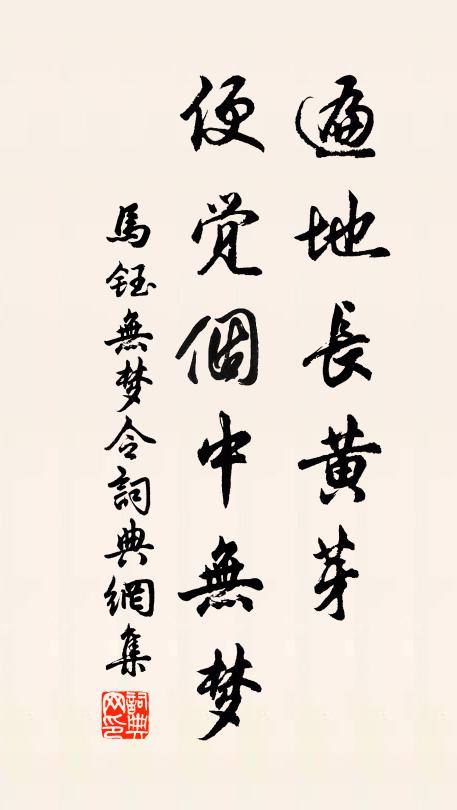 遍地長黃芽
便覺個中無梦
馬鈺無梦令詞典網集
詞典
网印